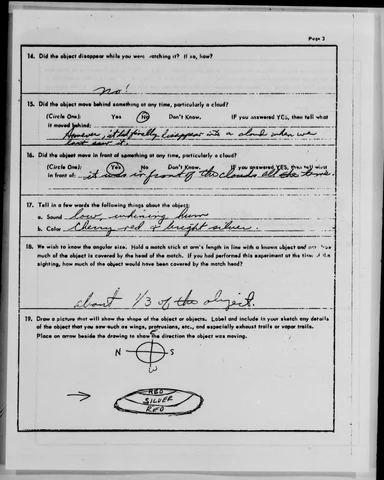 Page 3
14. Did the object disappear while you were watching it? If so, how?
no!
15. Did the object move behind something at any time, particularly a cloud?
(Circle One): Yes No Don't Know. IF you answered YES, then tell what
it moved behind:
However, it did finally disappear into a cloud when we
last saw it.
16. Did the object move in front of something at any time, particularly a cloud?
(Circle One): Yes No Don't Know. IF you answered YES, then tell what
in front of: it was in front of the clouds all the time.
17. Tell in a few words the following things about the object:
a. Sound low, whining hum
b. Color Cherry red & bright silver.
18. We wish to know the angular size. Hold a match stick at arm's length in line with a known object and note how
much of the object is covered by the head of the match. If you had performed this experiment at the time of the
sighting, how much of the object would have been covered by the match head?
about 1/3 of the object.
19. Draw a picture that will show the shape of the object or objects. Label and include in your sketch any details
of the object that you saw such as wings, protrusions, etc., and especially exhaust trails or vapor trails.
Place an arrow beside the drawing to show the direction the object was moving.
E
N S
W
RED
SILVER
RED